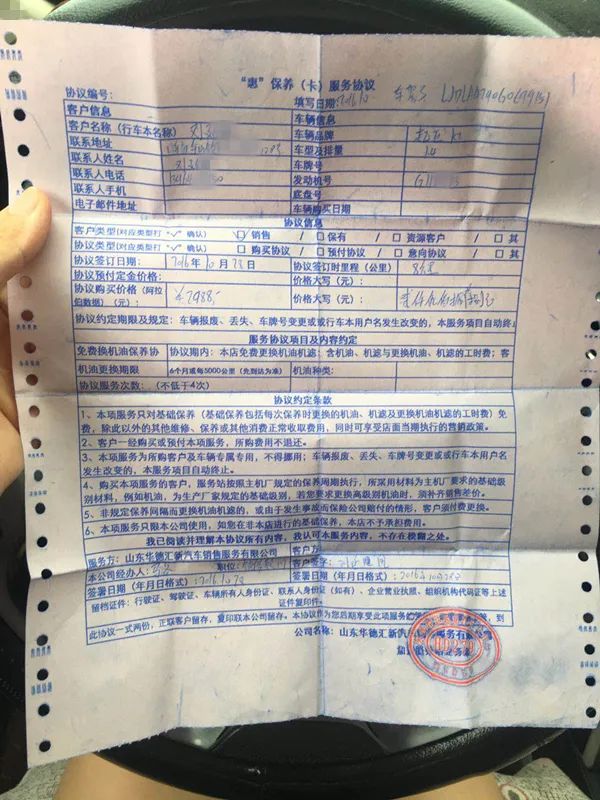 “惠”保养（卡）服务协议
协议编号： 填写日期：2016.10 车架号
客户信息 车辆信息
客户名称（行车本名称） 刘 车辆品牌
联系地址 车型及排量 1.4
联系人姓名 刘 车牌号
联系人电话 50 发动机号 G11
联系人手机 底盘号
电子邮件地址 车辆购买日期
协议信息
客户类型(对应类型打“√”确认) ☑ 销售 / □ 保有 / □ 资源客户 / □ 其
协议类型(对应类型打“√”确认) □ 购买协议 / □ 预付协议 / □ 意向协议 / □ 其
协议签订日期： 2016 年 10 月 28 日 协议签订时里程（公里）
协议预付定金价格： 价格大写（元）：
协议购买价格（阿拉伯数据）（元）： ￥2988. 价格大写（元）： 贰仟玖佰捌拾捌元
协议约定期限及规定：车辆报废、丢失、车牌号变更或或行车本用户名发生改变的，本服务项目自动终止
服务协议项目及内容约定
免费换机油保养协 协议期内：本店免费更换机油机滤：含机油、机滤与更换机油、机滤的工时费；客
机油更换期限 6个月或每5000公里（先到达为准） 机油种类：
协议服务次数：（不低于4次）
协议约定条款
1、本项服务只对基础保养（基础保养包括每次保养时更换的机油、机滤及更换机油机滤的工时费）免
费，除此以外的其他维修、保养或其他消费正常收取费用，同时可享受店面当期执行的营销政策。
2、客户一经购买或预付本项服务，所购费用不退还。
3、本项服务为所购客户及车辆专属专用，不得挪用；车辆报废、丢失、车牌号变更或或行车本用户名
发生改变的，本服务项目自动终止。
4、购买本项服务的客户，服务站按照主机厂规定的保养周期执行，所采用材料为主机厂要求的基础级
别材料，例如机油，为生产厂家规定的基础级别，若您要求更换高级别机油时，须补齐销售差价。
5、非规定保养间隔而更换机油的，或由于发生事故而保险公司赔付的情形，客户须付费更换。
6、本项服务只限本公司使用，如您在非本店进行的基础保养，本店不予承担费用。
我已阅读并理解本协议所有内容，我认可本服务内容，不存在模糊之处。
服务方：山东华德汇新汽车销售服务有限公司 客户方
本公司经办人： 职位： 客户签字：
签署日期（年月日格式）：2016.10.28 签署日期（年月日格式）：2016.10.28
留档证件：行驶证、驾驶证、车辆所有人身份证、联系人身份证（如有）、企业营业执照、组织机构代码证等上述
证件复印件。
此协议一式两份，正联客户留存，复印联本公司留存。本协议作为您后期享受此项服务
公司名称：山东华德汇新汽 服务有限